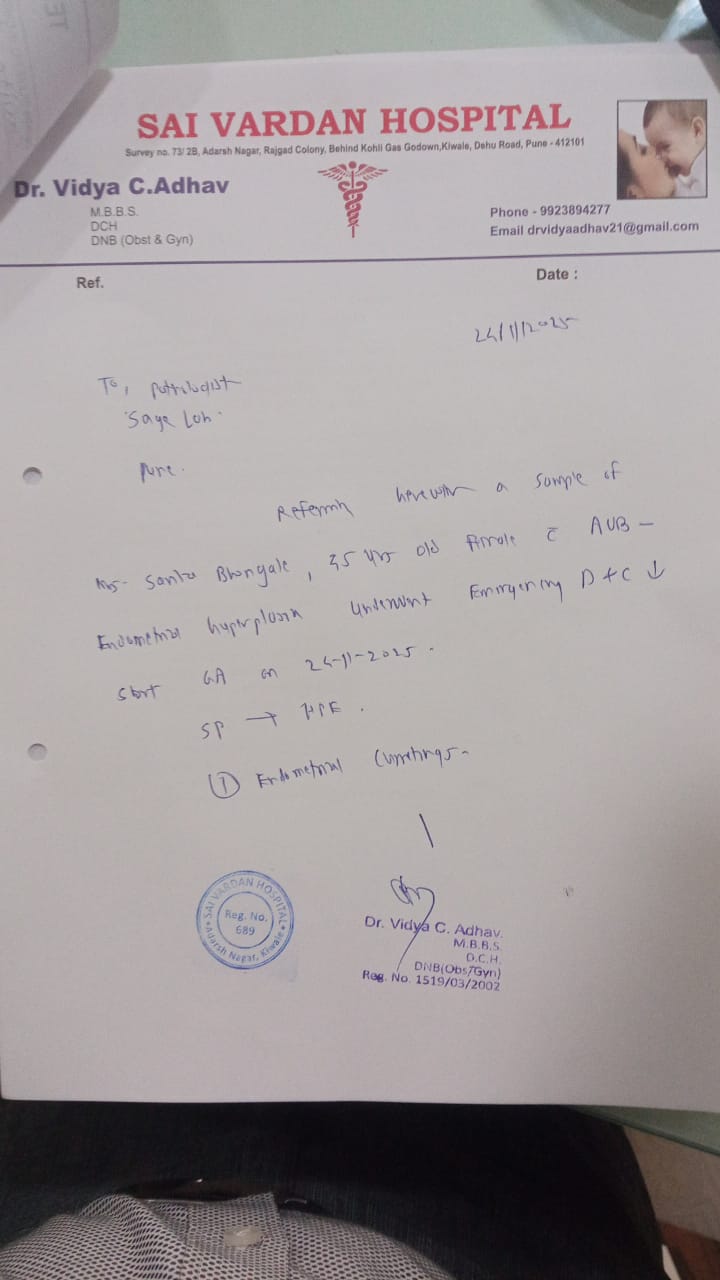 SAI VARDAN HOSPITAL
Survey no. 73/ 2B, Adarsh Nagar, Rajgad Colony, Behind Kohli Gas Godown,Kiwale, Dehu Road, Pune - 412101
Dr. Vidya C.Adhav
M.B.B.S.
DCH
DNB (Obst & Gyn)
Phone - 9923894277
Email drvidyaadhav21@gmail.com
Ref.
Date :
To,
Pune.
herewith a sample of
Bhongale, 35 yrs old c̄ AUB -
Endometrial hyperplasia underwent Emergency D & C ↓
short GA on 24-11-2025.
SP → HPE.
① Endometrial Curretings-
SAI VARDAN HOSPITAL
Reg. No.
689
Adarsh Nagar, Kiwale
Dr. Vidya C. Adhav.
M.B.B.S.
D.C.H.
DNB(Obs/Gyn)
Reg. No. 1519/03/2002